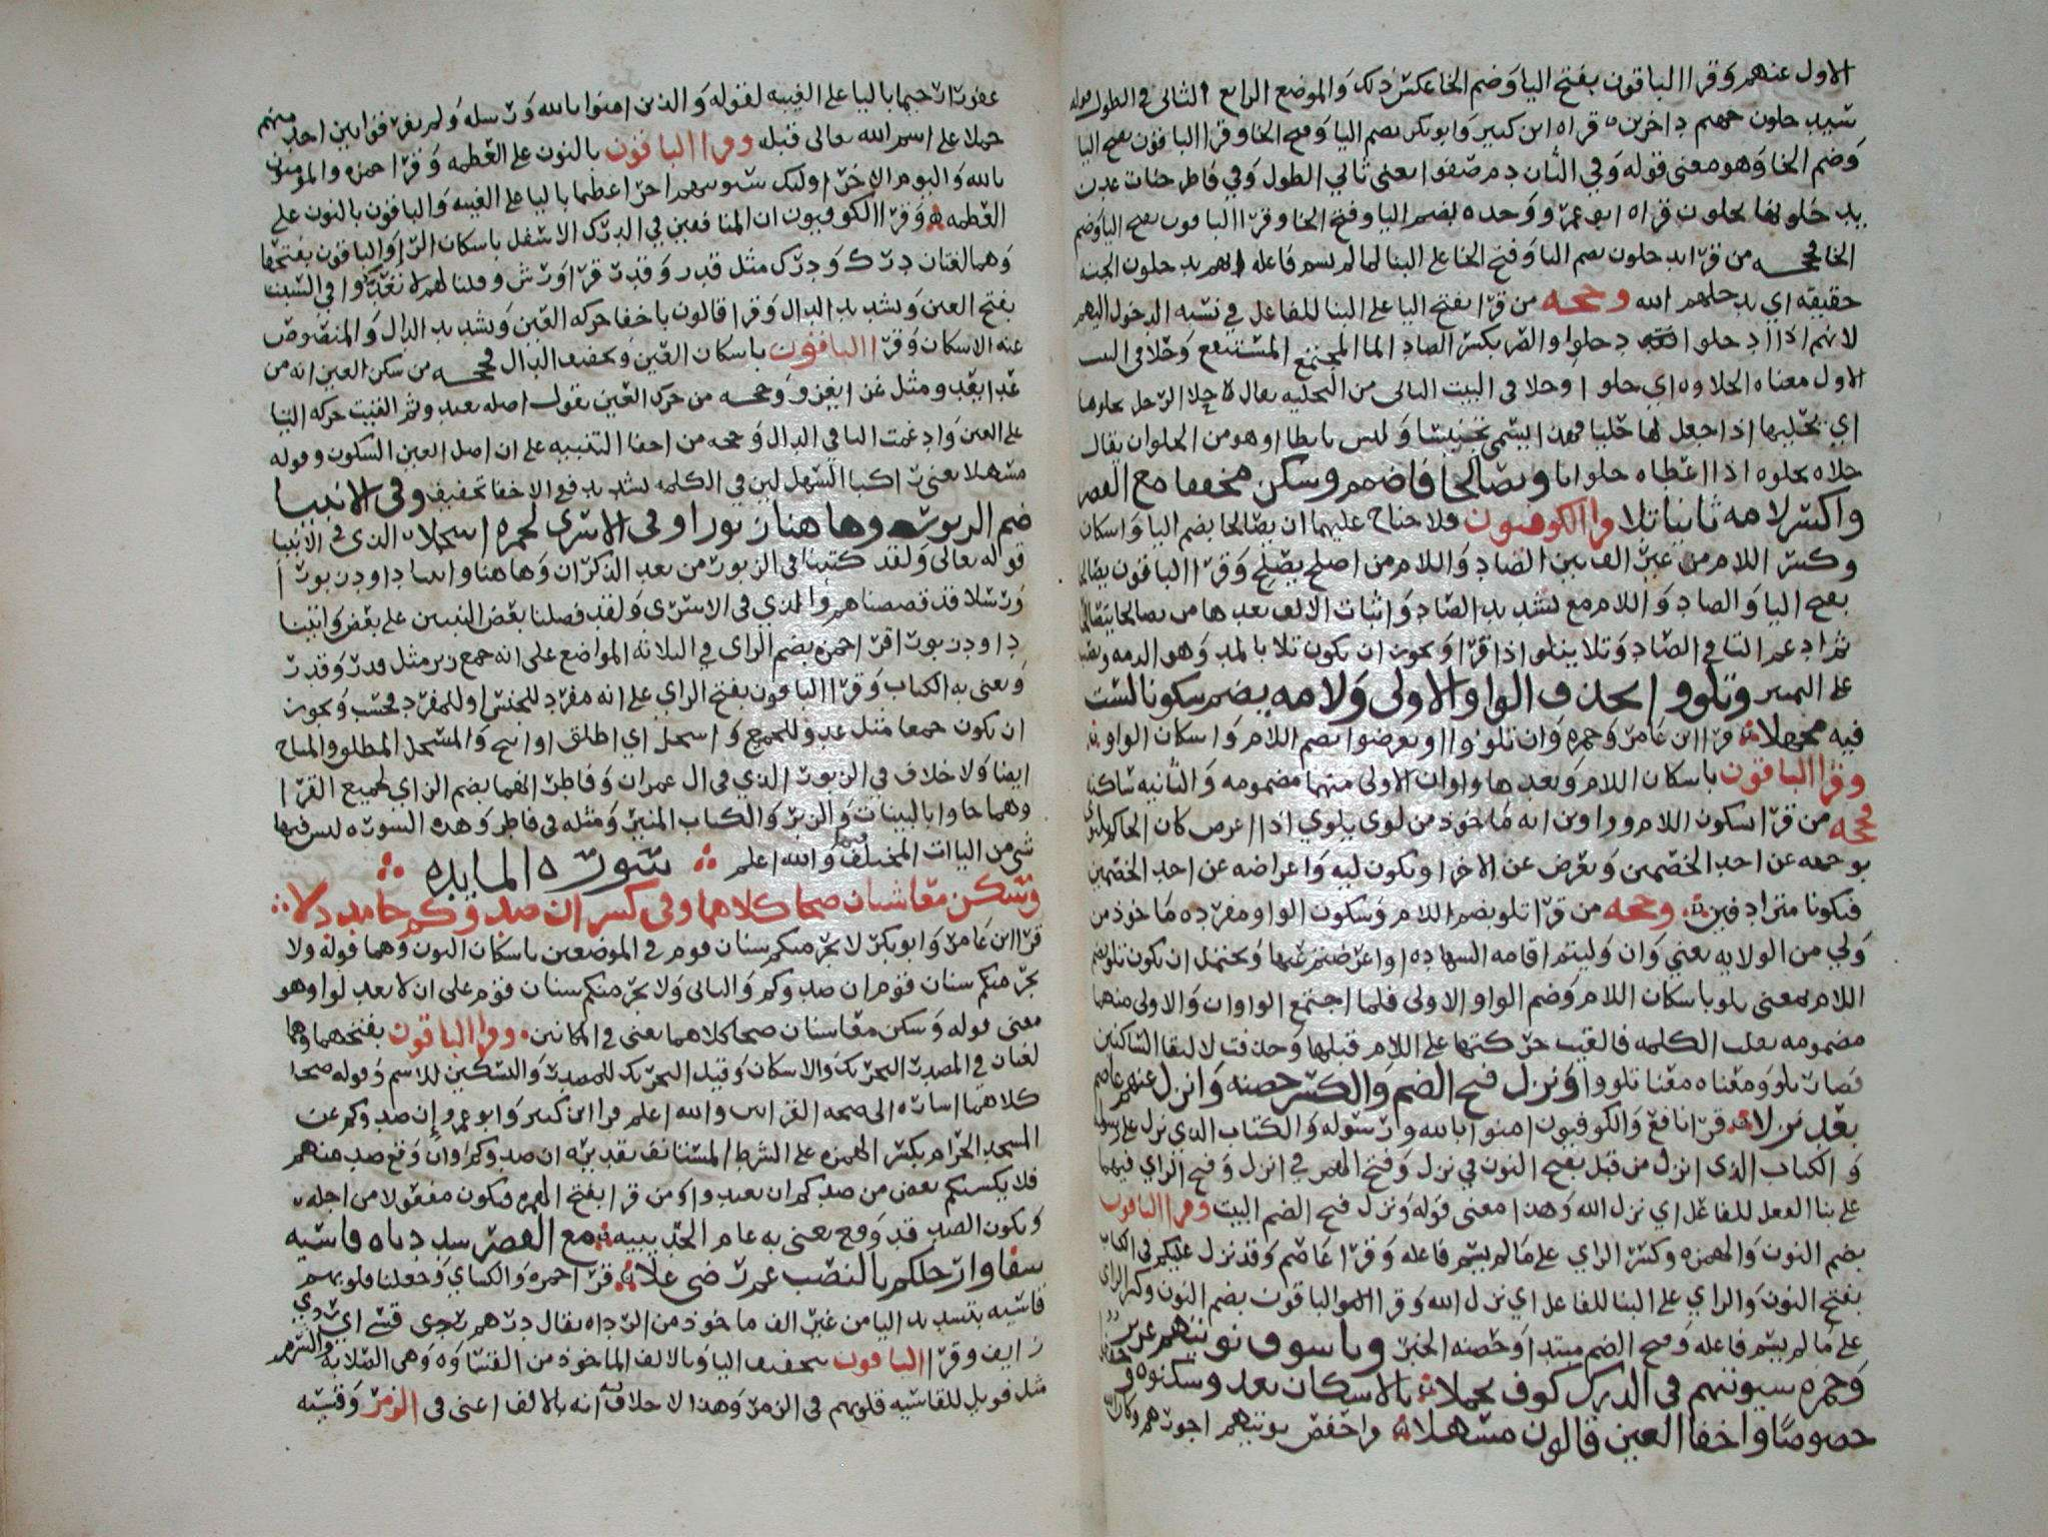 الاول عنهم وقرا الباقون بفتح اليا وضم الخا عكس ذلك والموضع الرابع الثانى فى الطول قوله
سيدخلون جهنم داخرين قراه ابن كثير وابوبكر بضم اليا وفتح الخا وقرا الباقون بفتح اليا
وضم الخا وهو معنى قوله وفي الثان دم صفوا يعنى ثاني الطول وفي فاطر جنات عدن
يدخلونها يحلون قراه ابو عمرو وحده بضم اليا وفتح الخا وقرا الباقون بفتح اليا وضم
الخا فحجه من قرا يدخلون بضم اليا وفتح الخا على البنا لما لم يسم فاعله انهم يدخلون الجنه
حقيقه اي يدخلهم الله وحجه من قرا بفتح اليا على البنا للفاعل في نسبه الدخول اليهم
لانهم اذا ادخلوا دخلوا والصر بكسر الصاد الما المجتمع المستنقع وحلا فى البيت
الاول معناه الحلاوه اي حلو وحلا فى البيت الثانى من التحليه يقال حلا الرجل يحلوها
اي يحليها اذا جعل لها حليا فهذا ايسمى تجنيسا وليس بايطا او هو من الحلوان يقال
حلاه يحلوه اذا اعطاه حلوانا ويصالحا فاضمم وسكن مخففا مع القصر
واكسر لامه ثابتا تلا قرا الكوفيون فلا جناح عليهما ان يصالحا بضم اليا واسكان
وكسر اللام من غير الف بين الصاد واللام من اصلح يصلح وقرا الباقون يصالحا
بفتح اليا والصاد واللام مع تشديد الصاد واثبات الالف بعدها من يصالحا يتصالحا
ثم ادغم التا في الصاد وتلا يتلوا اذا قرا ويجوز ان يكون تلا بالمد وهو الذمه ونصبا
على التمييز وتلووا بحذف الواو الاولى ولامه بضم سكونا لست
فيه مجهلا قرا ابن عامر وحمزه وان تلوا او تعرضوا بضم اللام واسكان الواو
وقرا الباقون باسكان اللام وبعدها واوان الاولى منهما مضمومه والثانيه ساكنه
فحجه من قرا بسكون اللام وواوين انه ماخوذ من لوى يلوي اذا اعرض كان الحاكم
بوجهه عن احد الخصمين ويعرض عن الاخر او يكون ليه واعراضه عن احد الخصمين
فيكونا مترادفين وحجه من قرا تلو بضم اللام وسكون الواو مفرده ماخوذ من
ولي من الولايه يعني وان وليتم اقامه الشهاده او اعرضتم عنها ويحتمل ان يكون تلو بضم
اللام بمعنى تلو باسكان اللام وضم الواو الاولى فلما اجتمع الواوان والاولى منهما
مضمومه بعلت الكلمه فالقيت حركتها على اللام قبلها وحذفت لالتقا الساكنين
فصار تلو ومعناه معنا تلووا ونزل فتح الضم والكسر حصنه وانزل عنهم عاصم
بعد نزلا قرا نافع والكوفيون امنوا بالله ورسوله والكتاب الذي نزل على رسوله
والكتاب الذى انزل من قبل بفتح النون في نزل وفتح الهمز في انزل وفتح الزاي فيهما
على بنا الفعل للفاعل اي نزل الله وهذا معنى قوله ونزل فتح الضم البيت وقرا الباقون
بضم النون والهمزه وكسر الزاي على مالم يسم فاعله وقرا عاصم وقد نزل عليكم فى الكتاب
بفتح النون والزاي على البنا للفاعل اي نزل الله وقرا الباقون بضم النون وكسر الزاي
على مالم يسم فاعله وفتح الضم مبتدا وحصنه الخبر ويا سوف نوتيهم عزيز
وحمزه سيوتيهم فى الدرك كوف تحملا بالاسكان تعدو سكنوه و
خصوصا واخفا العين قالون مسهلا قرا حفص يوتيهم اجورهم وكان الله
غفورا رحيما باليا على الغيبه لقوله والذين امنوا بالله ورسله ولم يفرقوا بين احد منهم
حملا على اسم الله تعالى قبله وقرا الباقون بالنون على العظمه وقرا حمزه والمومنون
بالله واليوم الاخر اوليك سيوتيهم اجرا عظيما باليا على الغيبه والباقون بالنون على
العظمه وقرا الكوفيون ان المنافقين في الدرك الاسفل باسكان الرا والباقون بفتحها
وهما لغتان درك ودرك مثل قدر وقدر قرا ورش وقلنا لهم لا تعدوا في السبت
بفتح العين وتشديد الدال وقرا قالون باخفا حركه العين وتشديد الدال والمنصوص
عنه الاسكان وقرا الباقون باسكان العين وتخفيف الدال فحجه من سكن العين انه من
عدا يعدو مثل غزا يغزو وحجه من حرك العين يقول اصله تعتدوا ثم القيت حركه التا
على العين وادغمت التا في الدال وحجه من اخفا التنبيه على ان اصل العين السكون وقوله
مسهلا يعني راكبا السهل لين في الكلمه تشديد فمع الاخفا تخفيف وفى الانبيا
ضم الزبور وهاهنا زبورا وفى الاسرى لحمزه اسجلا الذى فى الانبيا
قوله تعالى ولقد كتبنا فى الزبور من بعد الذكر ان وهاهنا واتينا داود زبورا
ورسلا قد قصصناهم والذي فى الاسرى ولقد فضلنا بعض النبيين على بعض واتينا
داود زبورا قرا حمزه بضم الزاى في الثلاثه المواضع على انه جمع زبر مثل قدر وقدر
ويعني به الكتاب وقرا الباقون بفتح الزاي على انه مفرد للجنس او للمفرد فحسب ويجوز
ان يكون جمعا مثل عدو للجمع واسجل اي اطلق او ابيح والمسجل المطلق والمباح
ايضا ولا خلاف في الزبور الذي فى ال عمران وفاطر انهما بضم الزاي لجميع القرا
وهما جاوا بالبينات والزبر والكتاب المنير ومثله فى فاطر وهذه السوره ليس فيها
شى من الياات المختلف فيها والله اعلم سورة المايده
وسكن معا شنان صحا كلاهما وفى كسر ان صدوكم حامد دلا
قرا ابن عامر وابوبكر لا يجرمنكم شنان قوم فى الموضعين باسكان النون وهما قوله ولا
يجرمنكم شنان قوم ان صدوكم والثانى ولا يجرمنكم شنان قوم على ان لا تعدلوا وهو
معنى قوله وسكن معا شنان صحا كلاهما يعنى فى المكانين وقرا الباقون بفتحهما وهما
لغتان فى المصدر التحريك والاسكان وقيل التحريك للمصدر والتسكين للاسم وقوله صحا
كلاهما اشاره الى صحه القراتين والله اعلم قرا ابن كثير وابو عمرو ان صدوكم عن
المسجد الحرام بكسر الهمزه على الشرط المستانف تقديره ان صدوكم او ان وقع صد منهم
فلا يكسبنكم بغض من صدكم ان تعتدوا ومن قرا بفتح الهمزه فيكون مفعولا من اجله
ويكون الصد قد وقع يعنى به عام الحديبيه مع القصر شدد ياه قاسيه
شفا وارجلكم بالنصب عم رضى علا قرا حمزه والكساي وجعلنا قلوبهم
قاسيه بتشديد اليا من غير الف ماخوذ من الرداه يقال درهم ردى قسى اي ردي
زايف وقرا الباقون بتخفيف اليا وبالالف الما خوذ من القساوه وهى الصلابه والشر
مثل فويل للقاسيه قلوبهم فى الزمر وهذا لا خلاف فيه انه بالالف اعنى فى الزمر وقسيه